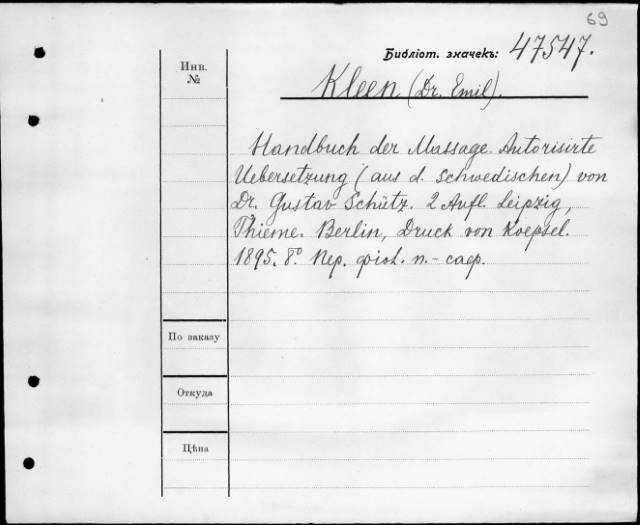 69
Библіот. значекъ: 47547.
Инв.
№
Kleen (Dr. Emil).
Handbuch der Massage. Autorisirte
Uebersetzung (aus d. Schwedischen) von
Dr. Gustav Schütz. 2 Aufl. Leipzig,
Thieme. Berlin, Druck von Koepsel.
1895. 8° Пер. фіол. п.-саф.
По заказу
Откуда
Цѣна